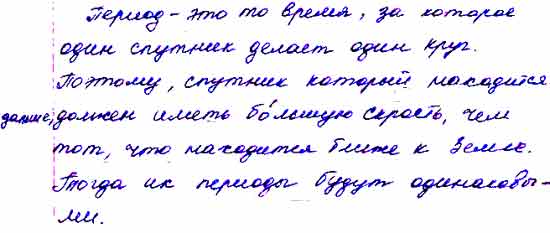 Период - это то время, за которое
один спутник делает один круг.
Поэтому, спутник который находится
дальше, должен иметь бо́льшую скрость, чем
тот, что находится ближе к Земле.
Тогда их периоды будут одинаковы-
ми.